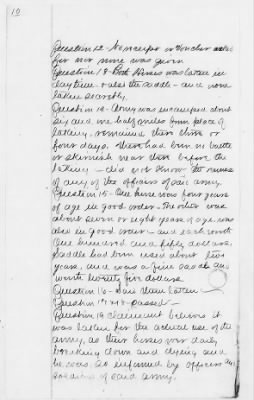 10
Question 12 - No receipt or Voucher asked
for nor none was given
Question 13 - Both Horses was taken in
day time - also the saddle - and none
taken secretly
Question 14 - Army was incamped about
six and one half miles from place of
taking, remained there three or
four days. There had been no battle
or skirmish near there before the
taking - did not know the names
of any of the officers of said army
Question 15 - One mare was four years
of age in good order - The other was
about seven or eight years of age, was
also in good order - and each worth
One hundred and fifty dollars.
Saddle had been used about two
years, and was a fine saddle and
worth twenty five dollars
Question 16 - Saw them taken -
Question 17 & 18 - passed -
Question 19 Claimant believes it
was taken for the actual use of the
army, as their horses wer daily
breaking down and dying and
he was so informed by officers and
soldiers of said army.